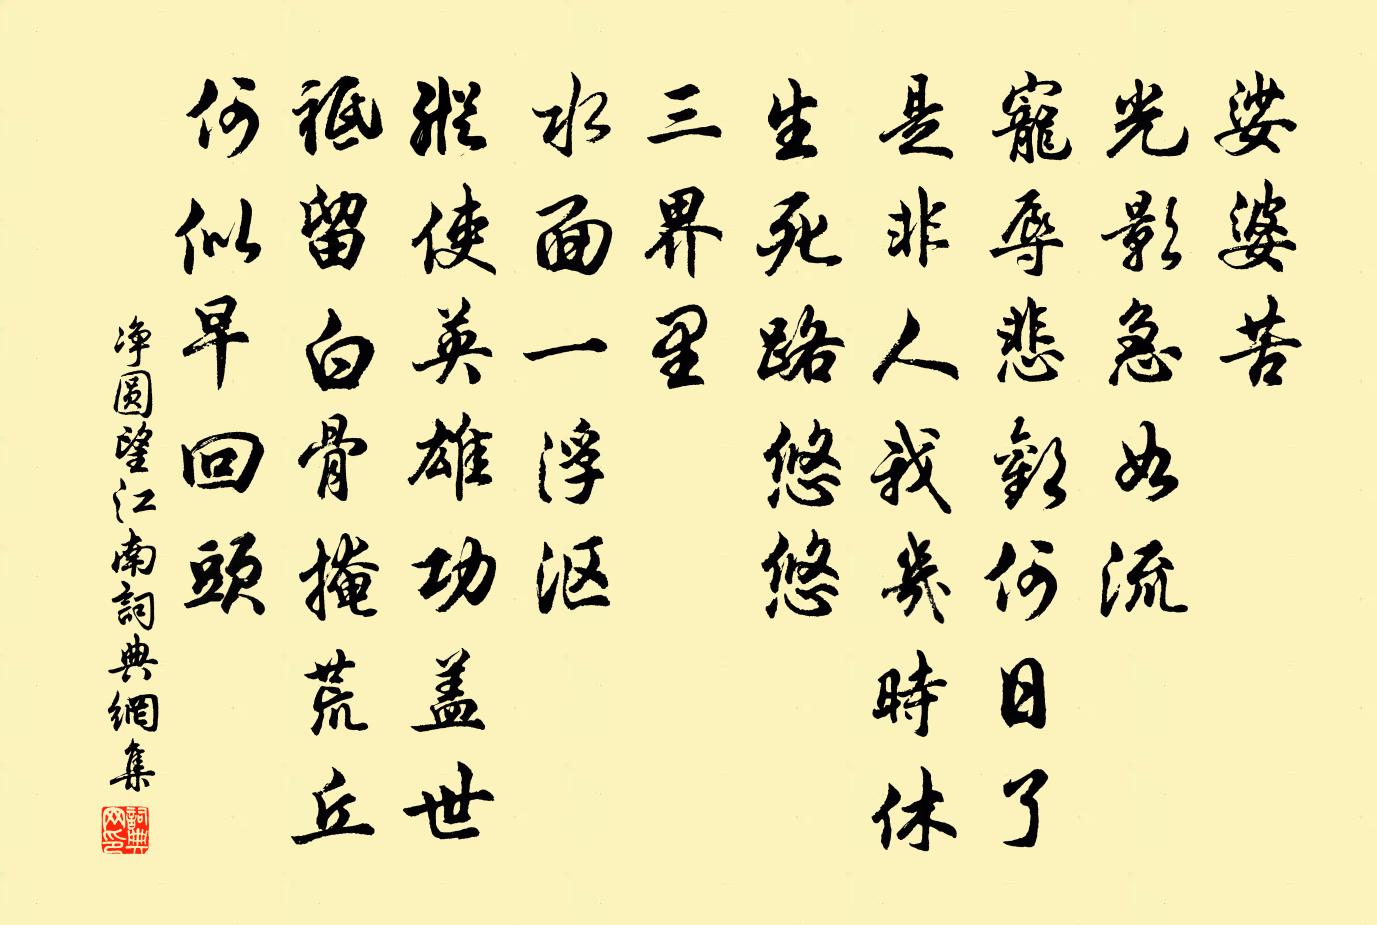 娑婆苦
光影急如流
寵辱悲歡何日了
是非人我幾時休
生死路悠悠
三界里
水面一浮沤
縱使英雄功盖世
祗留白骨掩荒丘
何似早回頭
净圆望江南詞典網集
詞典网印